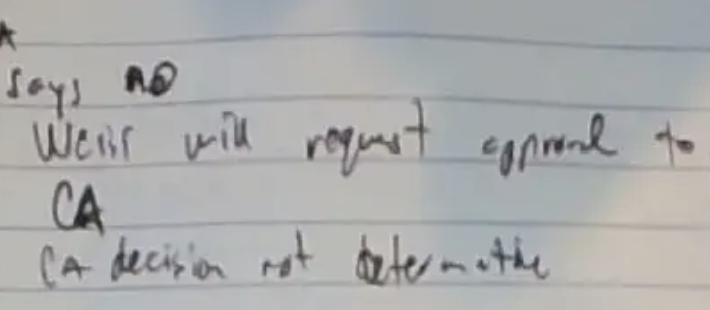 A
says no
Weiss will request approval to
CA
CA decision not determative